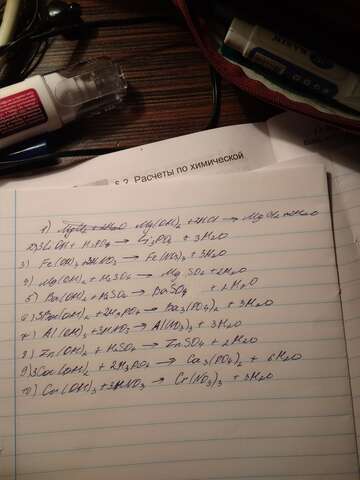 5.2. Расчеты по химической
1) Mg(OH)₂ + 2HCl → MgCl₂ + 2H₂O
2) 3LiOH + H₃PO₄ → Li₃PO₄ + 3H₂O
3) Fe(OH)₃ + 3HNO₃ → Fe(NO₃)₃ + 3H₂O
4) Mg(OH)₂ + H₂SO₄ → MgSO₄ + 2H₂O
5) Ba(OH)₂ + H₂SO₄ → BaSO₄ + 2H₂O
6) 3Ba(OH)₂ + 2H₃PO₄ → Ba₃(PO₄)₂ + 3H₂O
7) Al(OH)₃ + 3HNO₃ → Al(NO₃)₃ + 3H₂O
8) Zn(OH)₂ + H₂SO₄ → ZnSO₄ + 2H₂O
9) 3Ca(OH)₂ + 2H₃PO₄ → Ca₃(PO₄)₂ + 6H₂O
10) Cr(OH)₃ + 3HNO₃ → Cr(NO₃)₃ + 3H₂O